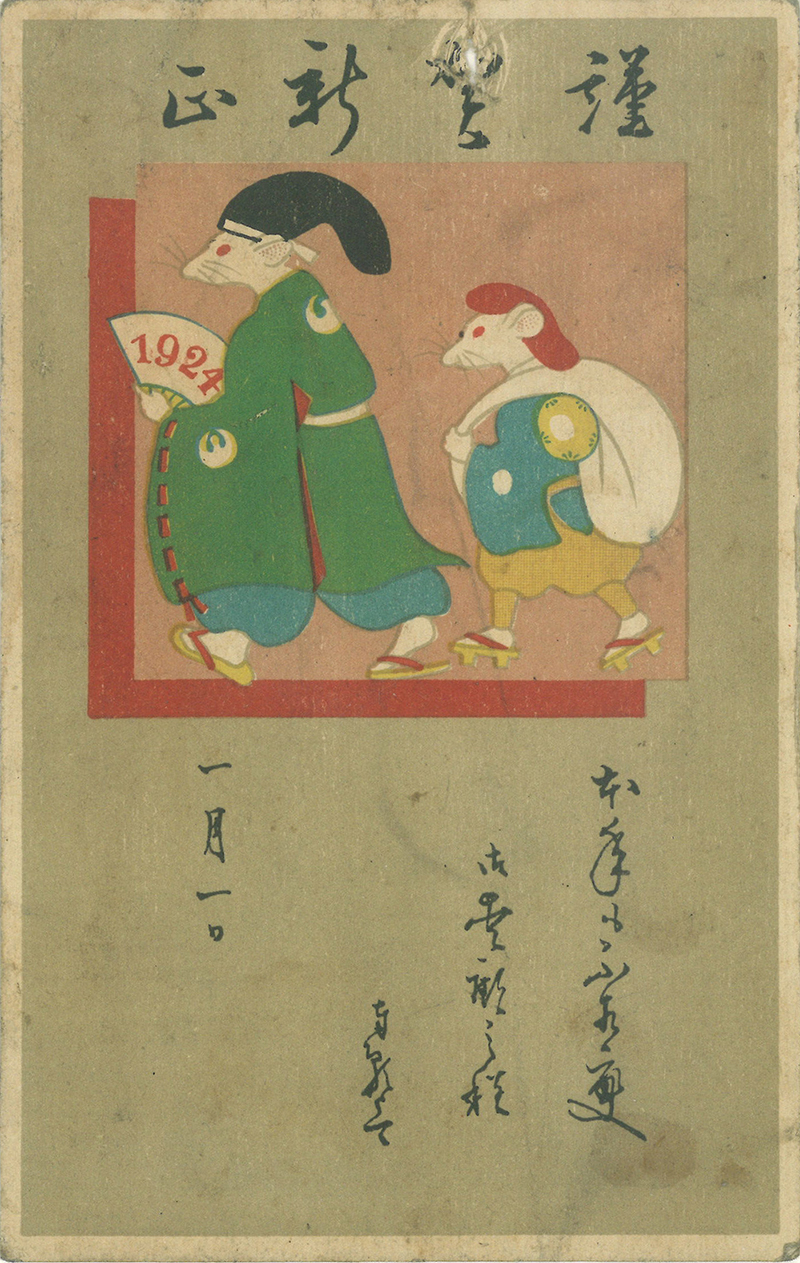 謹賀新正
1924
本年も不相変
御愛顧之程
奉願上候
一月一日